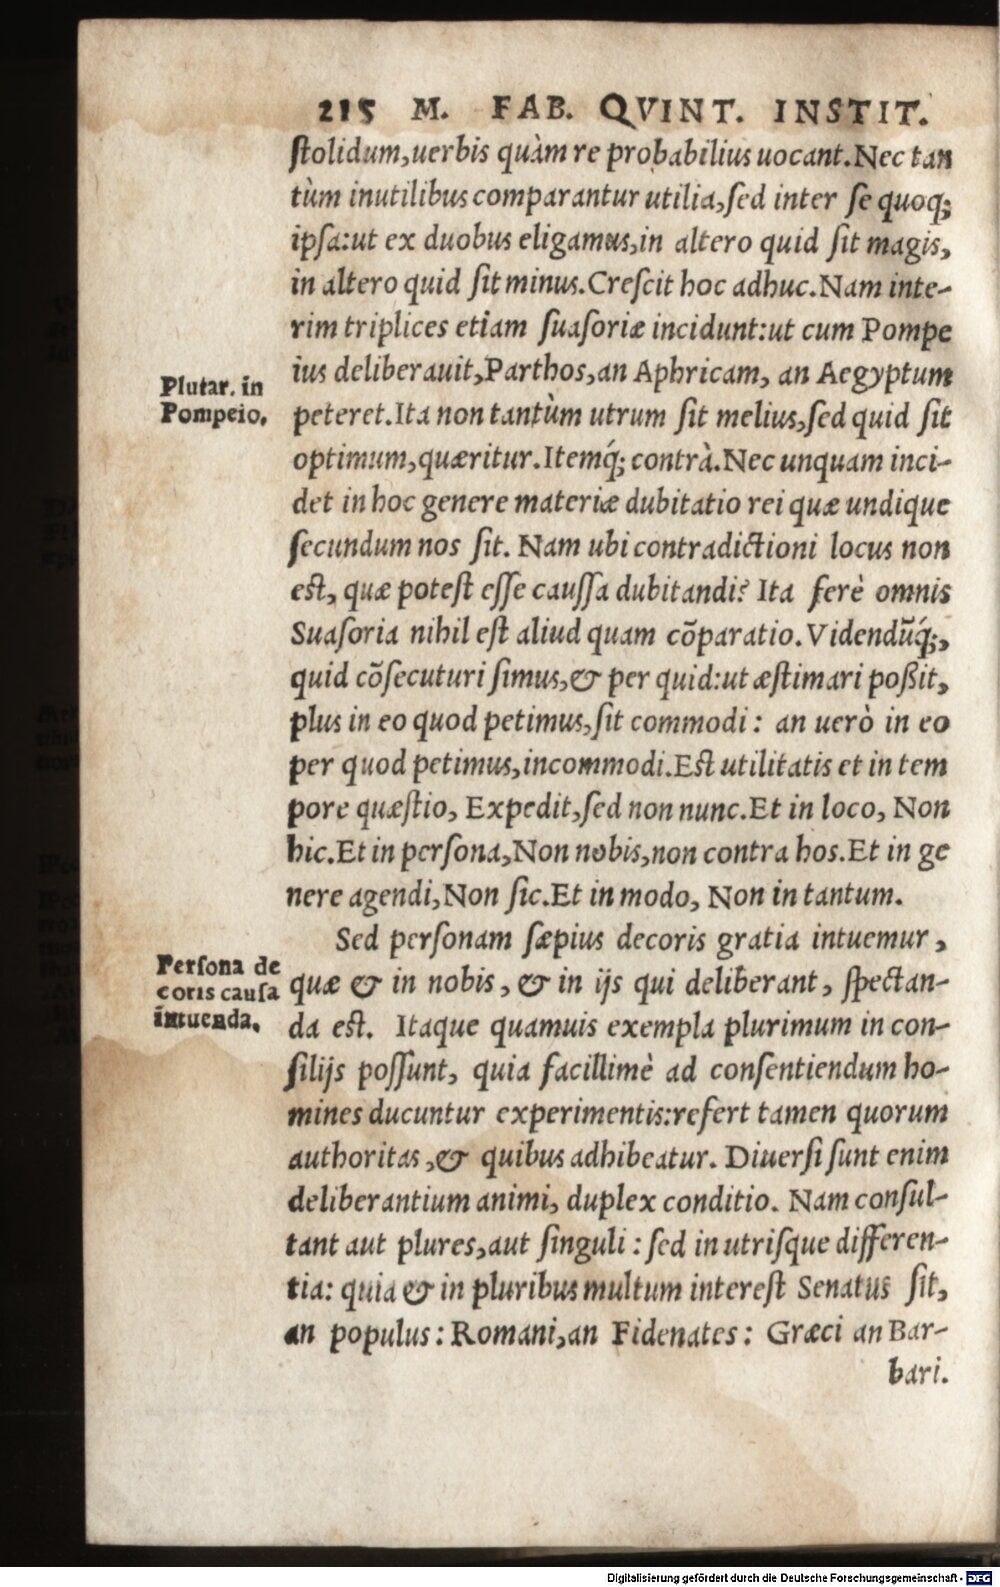 215 M. FAB. QVINT. INSTIT.
ſtolidum,uerbis quàm re probabilius uocant.Nec tan
tùm inutilibus comparantur utilia,ſed inter ſe quoq;
ipſa:ut ex duobus eligamus,in altero quid ſit magis,
in altero quid ſit minus.Creſcit hoc adhuc.Nam inte-
rim triplices etiam ſuaſoriæ incidunt:ut cum Pompe
ius deliberauit,Parthos,an Aphricam, an Aegyptum
Plutar. in
Pompeio.
peteret.Ita non tantùm utrum ſit melius,ſed quid ſit
optimum,quæritur.Itemq́; contrà.Nec unquam inci-
det in hoc genere materiæ dubitatio rei quæ undique
ſecundum nos ſit. Nam ubi contradictioni locus non
eſt, quæ poteſt eſſe cauſſa dubitandi? Ita ferè omnis
Suaſoria nihil eſt aliud quam cõparatio. Videndũq́;,
quid cõſecuturi ſimus,& per quid:ut æſtimari poßit,
plus in eo quod petimus,ſit commodi: an uerò in eo
per quod petimus,incommodi.Eſt utilitatis et in tem
pore quæſtio, Expedit,ſed non nunc.Et in loco, Non
hic.Et in perſona,Non nobis,non contra hos.Et in ge
nere agendi,Non ſic.Et in modo, Non in tantum.
Sed perſonam ſæpius decoris gratia intuemur,
Perſona de
coris cauſa
intuenda.
quæ & in nobis, & in ijs qui deliberant, ſpectan-
da eſt. Itaque quamuis exempla plurimum in con-
ſilijs poſſunt, quia facillimè ad conſentiendum ho-
mines ducuntur experimentis:refert tamen quorum
authoritas,& quibus adhibeatur. Diuerſi ſunt enim
deliberantium animi, duplex conditio. Nam conſul-
tant aut plures,aut ſinguli: ſed in utriſque differen-
tia: quia & in pluribus multum intereſt Senatus ſit,
an populus: Romani,an Fidenates: Græci an Bar-
bari.
Digitalisierung gefördert durch die Deutsche Forschungsgemeinschaft - DFG